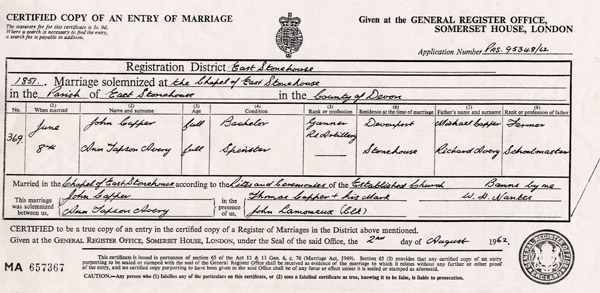 CERTIFIED COPY OF AN ENTRY OF MARRIAGE
Given at the GENERAL REGISTER OFFICE, SOMERSET HOUSE, LONDON
The statutory fee for this certificate is 3s. 9d.
Where a search is necessary to find the entry,
a search fee is payable in addition.
Application Number PAS. 95348/62
Registration District East Stonehouse
1851. Marriage solemnized at the Chapel of East Stonehouse
in the Parish of East Stonehouse in the County of Devon
(1) (2) (3) (4) (5) (6) (7) (8)
No. When married Name and surname Age Condition Rank or profession Residence at the time of marriage Father's name and surname Rank or profession of father
369. June 8th
John Capper full Bachelor Gunner Rl Artillery Devonport Michael Capper Farmer
Ann Tapson Avery full Spinster — Stonehouse Richard Avery Schoolmaster
Married in the Chapel of East Stonehouse according to the Rites and Ceremonies of the Established Church Banns by me
This marriage was solemnized between us, John Capper Ann Tapson Avery
in the presence of us, Thomas Capper + his Mark John Lamoureux (Clk)
W. H.
CERTIFIED to be a true copy of an entry in the certified copy of a Register of Marriages in the District above mentioned.
Given at the GENERAL REGISTER OFFICE, SOMERSET HOUSE, LONDON, under the Seal of the said Office, the 2nd day of August 1962.
MA 657367
This certificate is issued in pursuance of section 65 of the Marriage Act, 1949. Section 65 (3) provides that any certified copy of an entry
purporting to be sealed or stamped with the seal of the General Register Office shall be received as evidence of the marriage to which it relates without any further or other proof
of the entry, and no certified copy purporting to have been given in the said Office shall be of any force or effect unless it is sealed or stamped as aforesaid.
CAUTION.—Any person who (1) falsifies any of the particulars on this certificate, or (2) uses a falsified certificate as true, knowing it to be false, is liable to prosecution.